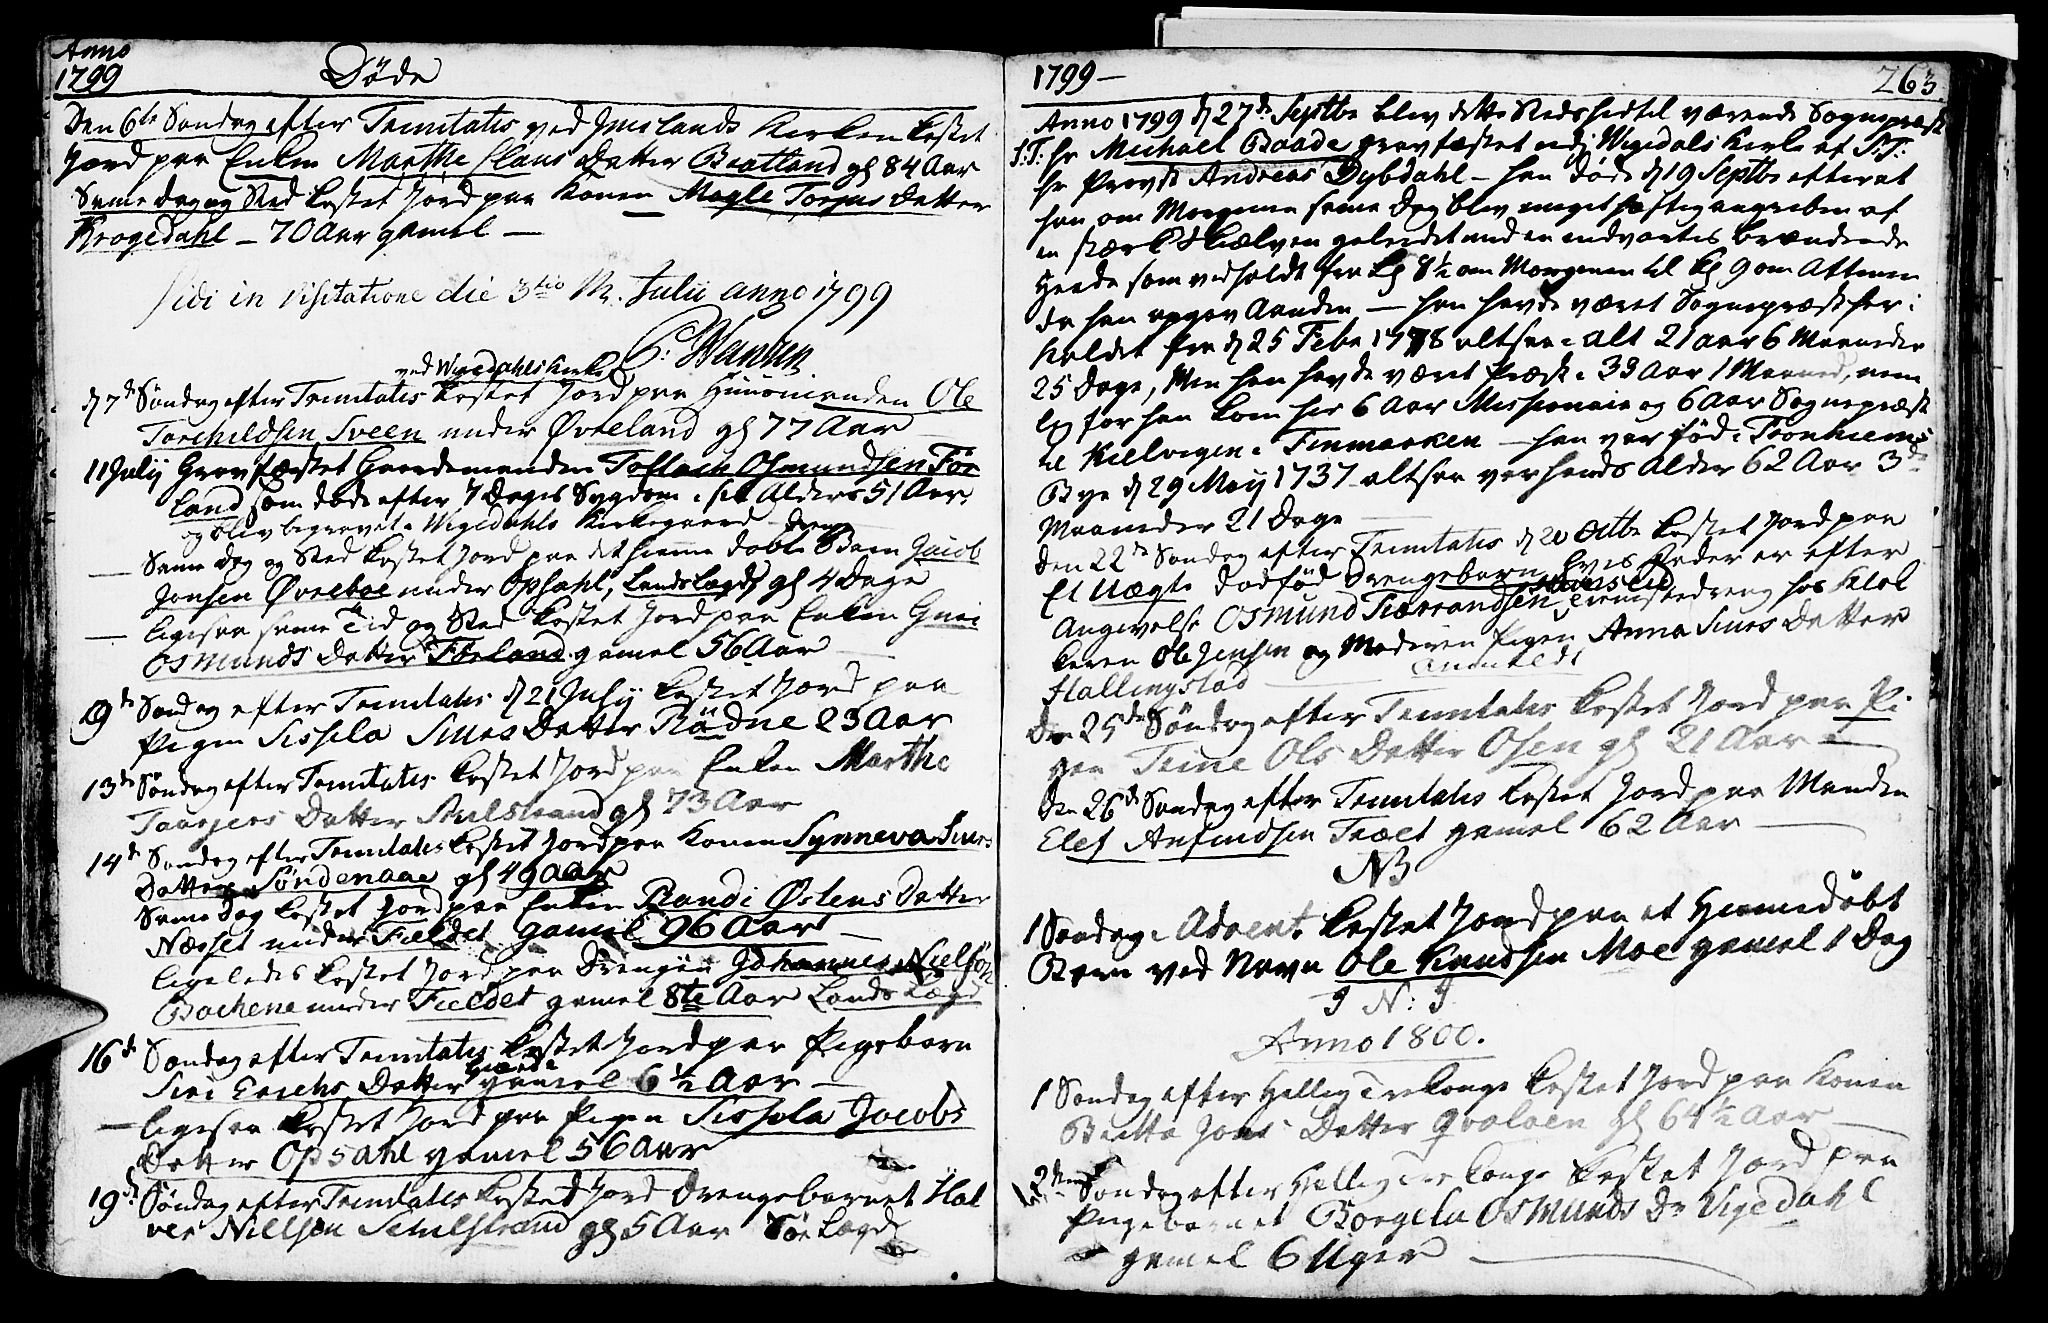 Anno
1799 Døde
Den 6te Søndag efter Trinitatis ved Imslands Kirken kastet
Jord paa Enken Marthe Claus Datter Bratland gl 84 Aar
Same dag og Sted kastet Jord paa Konen Magle Torjus Datter
Krogedahl – 70 Aar gamel –
Vidi in Visitatione die 3tio M. Julii anno 1799
P: Hansen
ved Wigedahls Kirke
d 7de Søndag efter Trinitatis kastet Jord paa Huusmanden Ole
Torchildsen Sveen under Øvreland gl 77 Aar
11 July Gravfæstet Gaardemanden Tollach Osmundsen Før
land som døde efter 7 Dages Sygdom i sit Alders 51 Aar
og blev begravet i Wigedahls Kirkegaard
– Same Dag og Sted kastet Jord paa det hiemme døbte Drenge Barn Jacob
Jonsen Øvreboe under Opsahl, Landslægd gl 4 Dage
– ligesaa same Tid og Sted kastet Jord paa Enken Guri
Osmunds Datter Førland gamel 56 Aar –
9de Søndag efter Trinitatis d 21 July kastet Jord paa
Pigen Sissela Siurs Datter Rødne 23 Aar
13de Søndag efter Trinitatis kastet Jord paa Enken Marthe
Taarjers Datter gl 73 Aar
14de Søndag efter Trinitatis kastet Jord paa Konen Synneva Siurs
Datter Søndenaae gl 49 Aar
Same Dag kastet Jord paa Enken Randi Østens Datter
Næsset under Fieldet gamel 96 Aar –
ligeledes kastet Jord paa Drengen Johannes Nielsøn
Bachene under Fieldet gamel 8te Aar Lands Lægd
16de Søndag efter Trinitatis kastet Jord paa Pigebarn
Siri Erichs Datter gamel 6 ½ Aar –
– ligesaa kastet Jord paa Pigen Sissela Jacobs
Datter Opsahl gamel 56 Aar
19de Søndag efter Trinitatis kastet Jord Drengebarnet Hal
vor Nielsen gl 5 Aar Før Lægd
1799 – 263
Anno 1799 d 27de Septbr blev dette Steds hidtil værende Sognepræst
S:T: hr Michael Baade gravfæstet ved Wigedals Kirke af S:T:
hr Provst Andreas Dybdahl – han døde d 19 Septbr efterat
han om Morgenen same Dag blev meget hæftig angreben af
en stærk Skiælven geleidet med en indvortes brændende
Heede som vedholdt fra Kl 8 ½ om Morgenen til Kl 9 om Aftenen
da han opgav Aanden – han havde været Sognepræst her i
Kaldet fra d 25 Febr 1778 altsaa i alt 21 aar 6 Maaneder
25 Dage, Men han havde været Præst i 33 Aar 1 Maaned, nem
lig før han kom her 6 Aar Missionair og 6 Aar Sognepræst
til Kielvigen i Finmarken – han var fød i Tronhiems
Bye d 29 May 1737 altsaa var hands Alder 62 Aar 3de
Maaneder 21 Dage –
Den 22de Søndag efter Trinitatis d 20 Octbr kastet Jord paa
Et Uægte dødfød Drengebarn hvis Fader er efter
Angivelse Osmund Tiærrandsen tienistedreng hos Klok
keren Ole Jensen og Moderen Pigen Anna Siurs Datter
Hallingstad –
Den 25de Søndag efter Trinitatis kastet Jord paa Pi
gen Trine Ols Datter Osen gl 21 Aar –
Den 26de Søndag efter Trinitatis kastet Jord paa Manden
Elef Anfindsen Træet gamel 62 Aar –
NB
1 Søndag i Advent kastet Jord paa et Hiemmedøbt
Barn ved Navn Ole Knudsen Moe gamel 1 Dag
I N: J
Anno 1800.
1 Søndag efter Hellig Tre Konge kastet Jord paa Konen
Britta Jons Datter Qvaløen gl 64 ½ Aar –
2den Søndag efter Hellig Tre Konge kastet Jord paa
Pigebarnet Borgela Osmunds Dr Vigedahl
gamel 6 Uger –